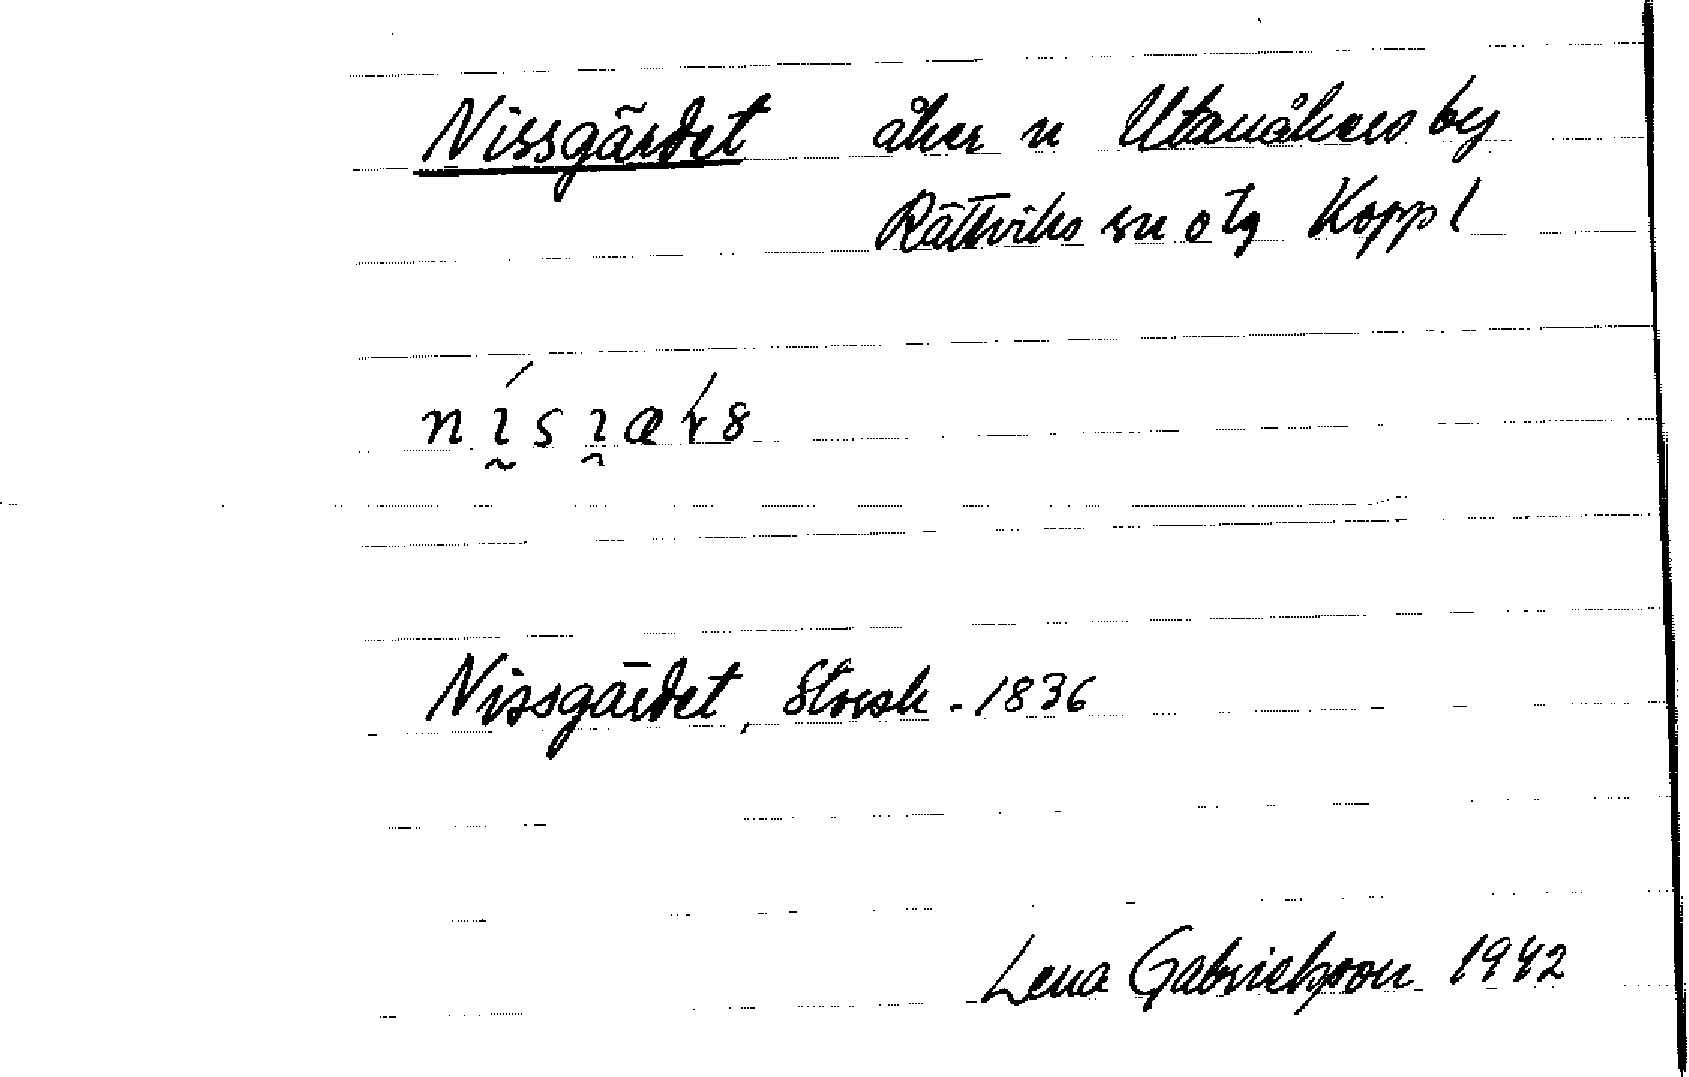 Nissgärdet åker n Utanåkers by
Rättviks sn o tg Koppl
Nissgärdet, Storsk. 1836
Lena Gabrielsson 1942